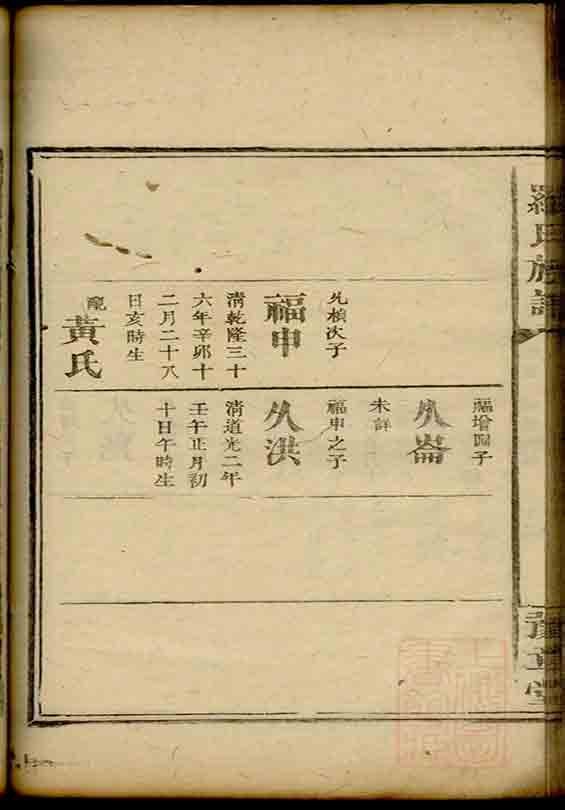 羅氏族譜
次子
福申
清乾隆三十
六年辛卯十
二月二十八
日亥時生
配
黃氏
福增四子
崙
未詳
福申之子
洪
清道光二年
壬午正月初
十日午時生
豫章堂